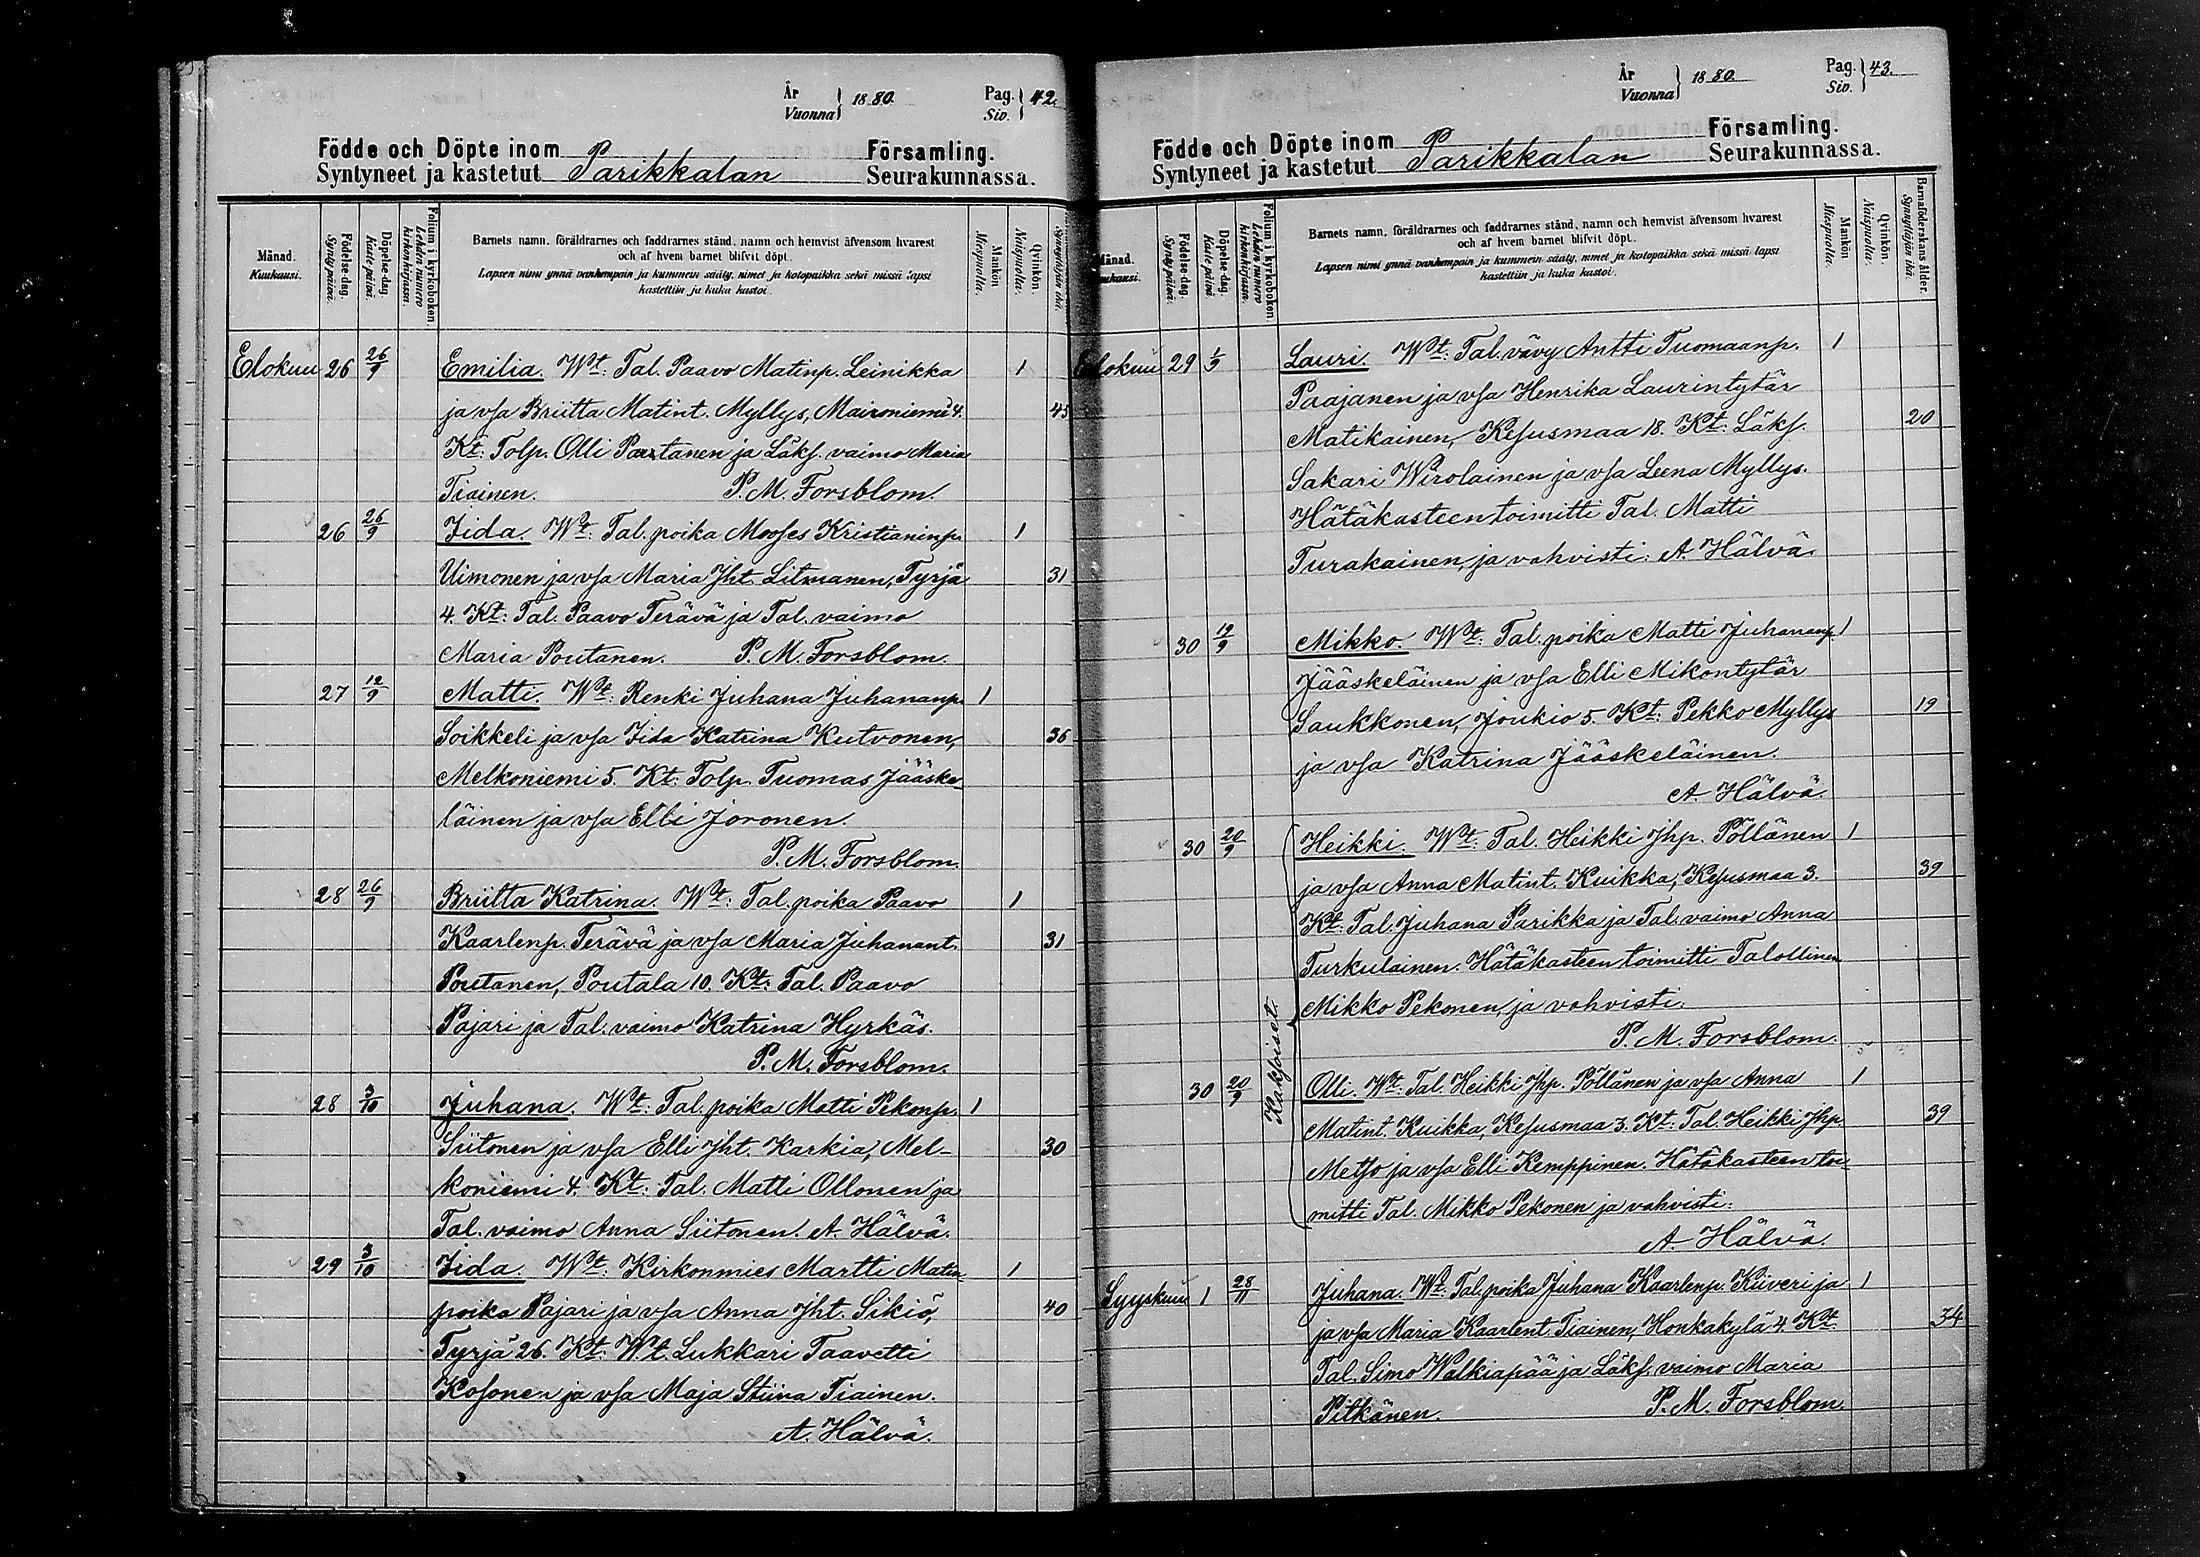 År
Vuonna } 1880.
Pag.
Siv. } 42.
Födde och Döpte inom Parikkalan Församling.
Syntyneet ja kastetut Seurakunnassa.
Månad. Kuukausi.
Födelse-dag. Syntypäivä.
Döpelse-dag. Kastepäivä.
Folium i kyrkoboken. Lehden numero kirkonkirjassa.
Barnets namn, föräldrarnes och faddrarnes stånd, namn och hemvist äfvensom hvarest
och af hvem barnet blifvit döpt.
Lapsen nimi ynnä vanhempain ja kummein sääty, nimet ja kotopaikka sekä missä lapsi
kastettiin ja kuka kastoi.
Mankön. Miespuolia.
Qvinkön. Naispuolia.
Elokuu 26 26/9 Emilia. Wt: Tal. Paavo Matinp. Leinikka 1
ja vsa Briitta Matint. Myllys, Maironiemi 4. 45
Kt: Tolp. Olli Partanen ja Läks. vaimo Maria
Tiainen. P. M. Forsblom.
26 26/9 Iida. Wt: Tal. poika Mooses Kristianinp. 1
Uimonen ja vsa Maria Jht. Litmanen, Tyrjä 31
4. Kt: Tal. Paavo Terävä ja Tal. vaimo
Maria Poutanen. P. M. Forsblom.
27 12/9 Matti. Wt: Renki Juhana Juhananp. 1
Soikkeli ja vsa Iida Katrina Kutvonen, 36
Melkoniemi 5. Kt: Tolp. Tuomas Jääske-
läinen ja vsa Elli Joronen.
P. M. Forsblom.
28 26/9 Briitta Katrina. Wt: Tal. poika Paavo 1
Kaarlenp. Terävä ja vsa Maria Juhanant. 31
Poutanen, Poutala 10. Kt: Tal. Paavo
Pajari ja Tal. vaimo Katrina Hyrkäs.
P. M. Forsblom.
28 3/10 Juhana. Wt: Tal. poika Matti Pekonp. 1
Siitonen ja vsa Elli Jht. Karkia, Mel- 30
koniemi 4. Kt: Tal. Matti Ollonen ja
Tal. vaimo Anna Siitonen. A. Hälvä.
29 3/10 Iida. Wt: Kirkonmies Martti Matin 1
poika Pajari ja vsa Anna Jht. Sikiö, 40
Tyrjä 26. Kt: Wt. Lukkari Taavetti
Kosonen ja vsa Maja Stiina Tiainen.
A. Hälvä.
År
Vuonna } 1880.
Pag.
Siv. } 43.
Födde och Döpte inom Parikkalan Församling.
Syntyneet ja kastetut Seurakunnassa.
Månad. Kuukausi.
Födelse-dag. Syntypäivä.
Döpelse-dag. Kastepäivä.
Folium i kyrkoboken. Lehden numero kirkonkirjassa.
Barnets namn, föräldrarnes och faddrarnes stånd, namn och hemvist äfvensom hvarest
och af hvem barnet blifvit döpt.
Lapsen nimi ynnä vanhempain ja kummein sääty, nimet ja kotopaikka sekä missä lapsi
kastettiin ja kuka kastoi.
Mankön. Miespuolia.
Qvinkön. Naispuolia.
Barnaföderskans ålder. Synnyttäjän ikä.
Elokuu 29 1/9 Lauri. Wt: Tal. vävy Antti Tuomaanp. 1
Paajanen ja vsa Henrika Laurintytär
Matikainen, Kesusmaa 18. Kt: Läks. 20
Sakari Wirolainen ja vsa Leena Myllys.
Hätäkasteen toimitti Tal. Matti
Turakainen, ja vahvisti: A. Hälvä.
30 19/9 Mikko. Wt: Tal. poika Matti Juhananp. 1
Jääskeläinen ja vsa Elli Mikontytär
Saukkonen, Joukio 5. Kt: Pekko Myllys 19
ja vsa Katrina Jääskeläinen.
A. Hälvä.
Kaksoiset.
30 20/9 Heikki. Wt: Tal. Heikki Jhp. Pöllänen 1
ja vsa Anna Matint. Kuikka, Kesusmaa 3. 39
Kt: Tal. Juhana Parikka ja Tal. vaimo Anna
Turkulainen. Hätäkasteen toimitti Talollinen
Mikko Pekonen, ja vahvisti:
P. M. Forsblom.
30 20/9 Olli. Wt: Tal. Heikki Jhp. Pöllänen ja vsa Anna 1
Matint. Kuikka, Kesusmaa 3. Kt: Tal. Heikki Jhp. 39
Metso ja vsa Elli Kemppinen. Hätäkasteen toi
mitti Tal. Mikko Pekonen ja vahvisti:
A. Hälvä.
Syyskuu 1 28/11 Juhana. Wt: Tal. poika Juhana Kaarlenp. Kiiveri ja 1
ja vsa Maria Kaarlent. Tiainen, Honkakylä 4. Kt: 34
Tal. Simo Walkiapää ja Läks. vaimo Maria
Pitkänen. P. M. Forsblom.